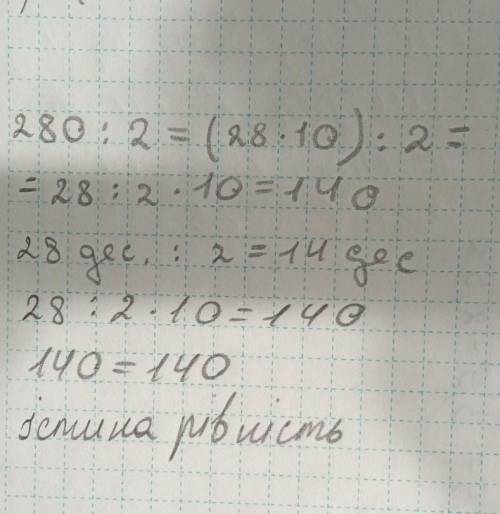 280 : 2 = (28 · 10) : 2 =
= 28 : 2 · 10 = 140
28 дес. : 2 = 14 дес
28 : 2 · 10 = 140
140 = 140
істина рівність